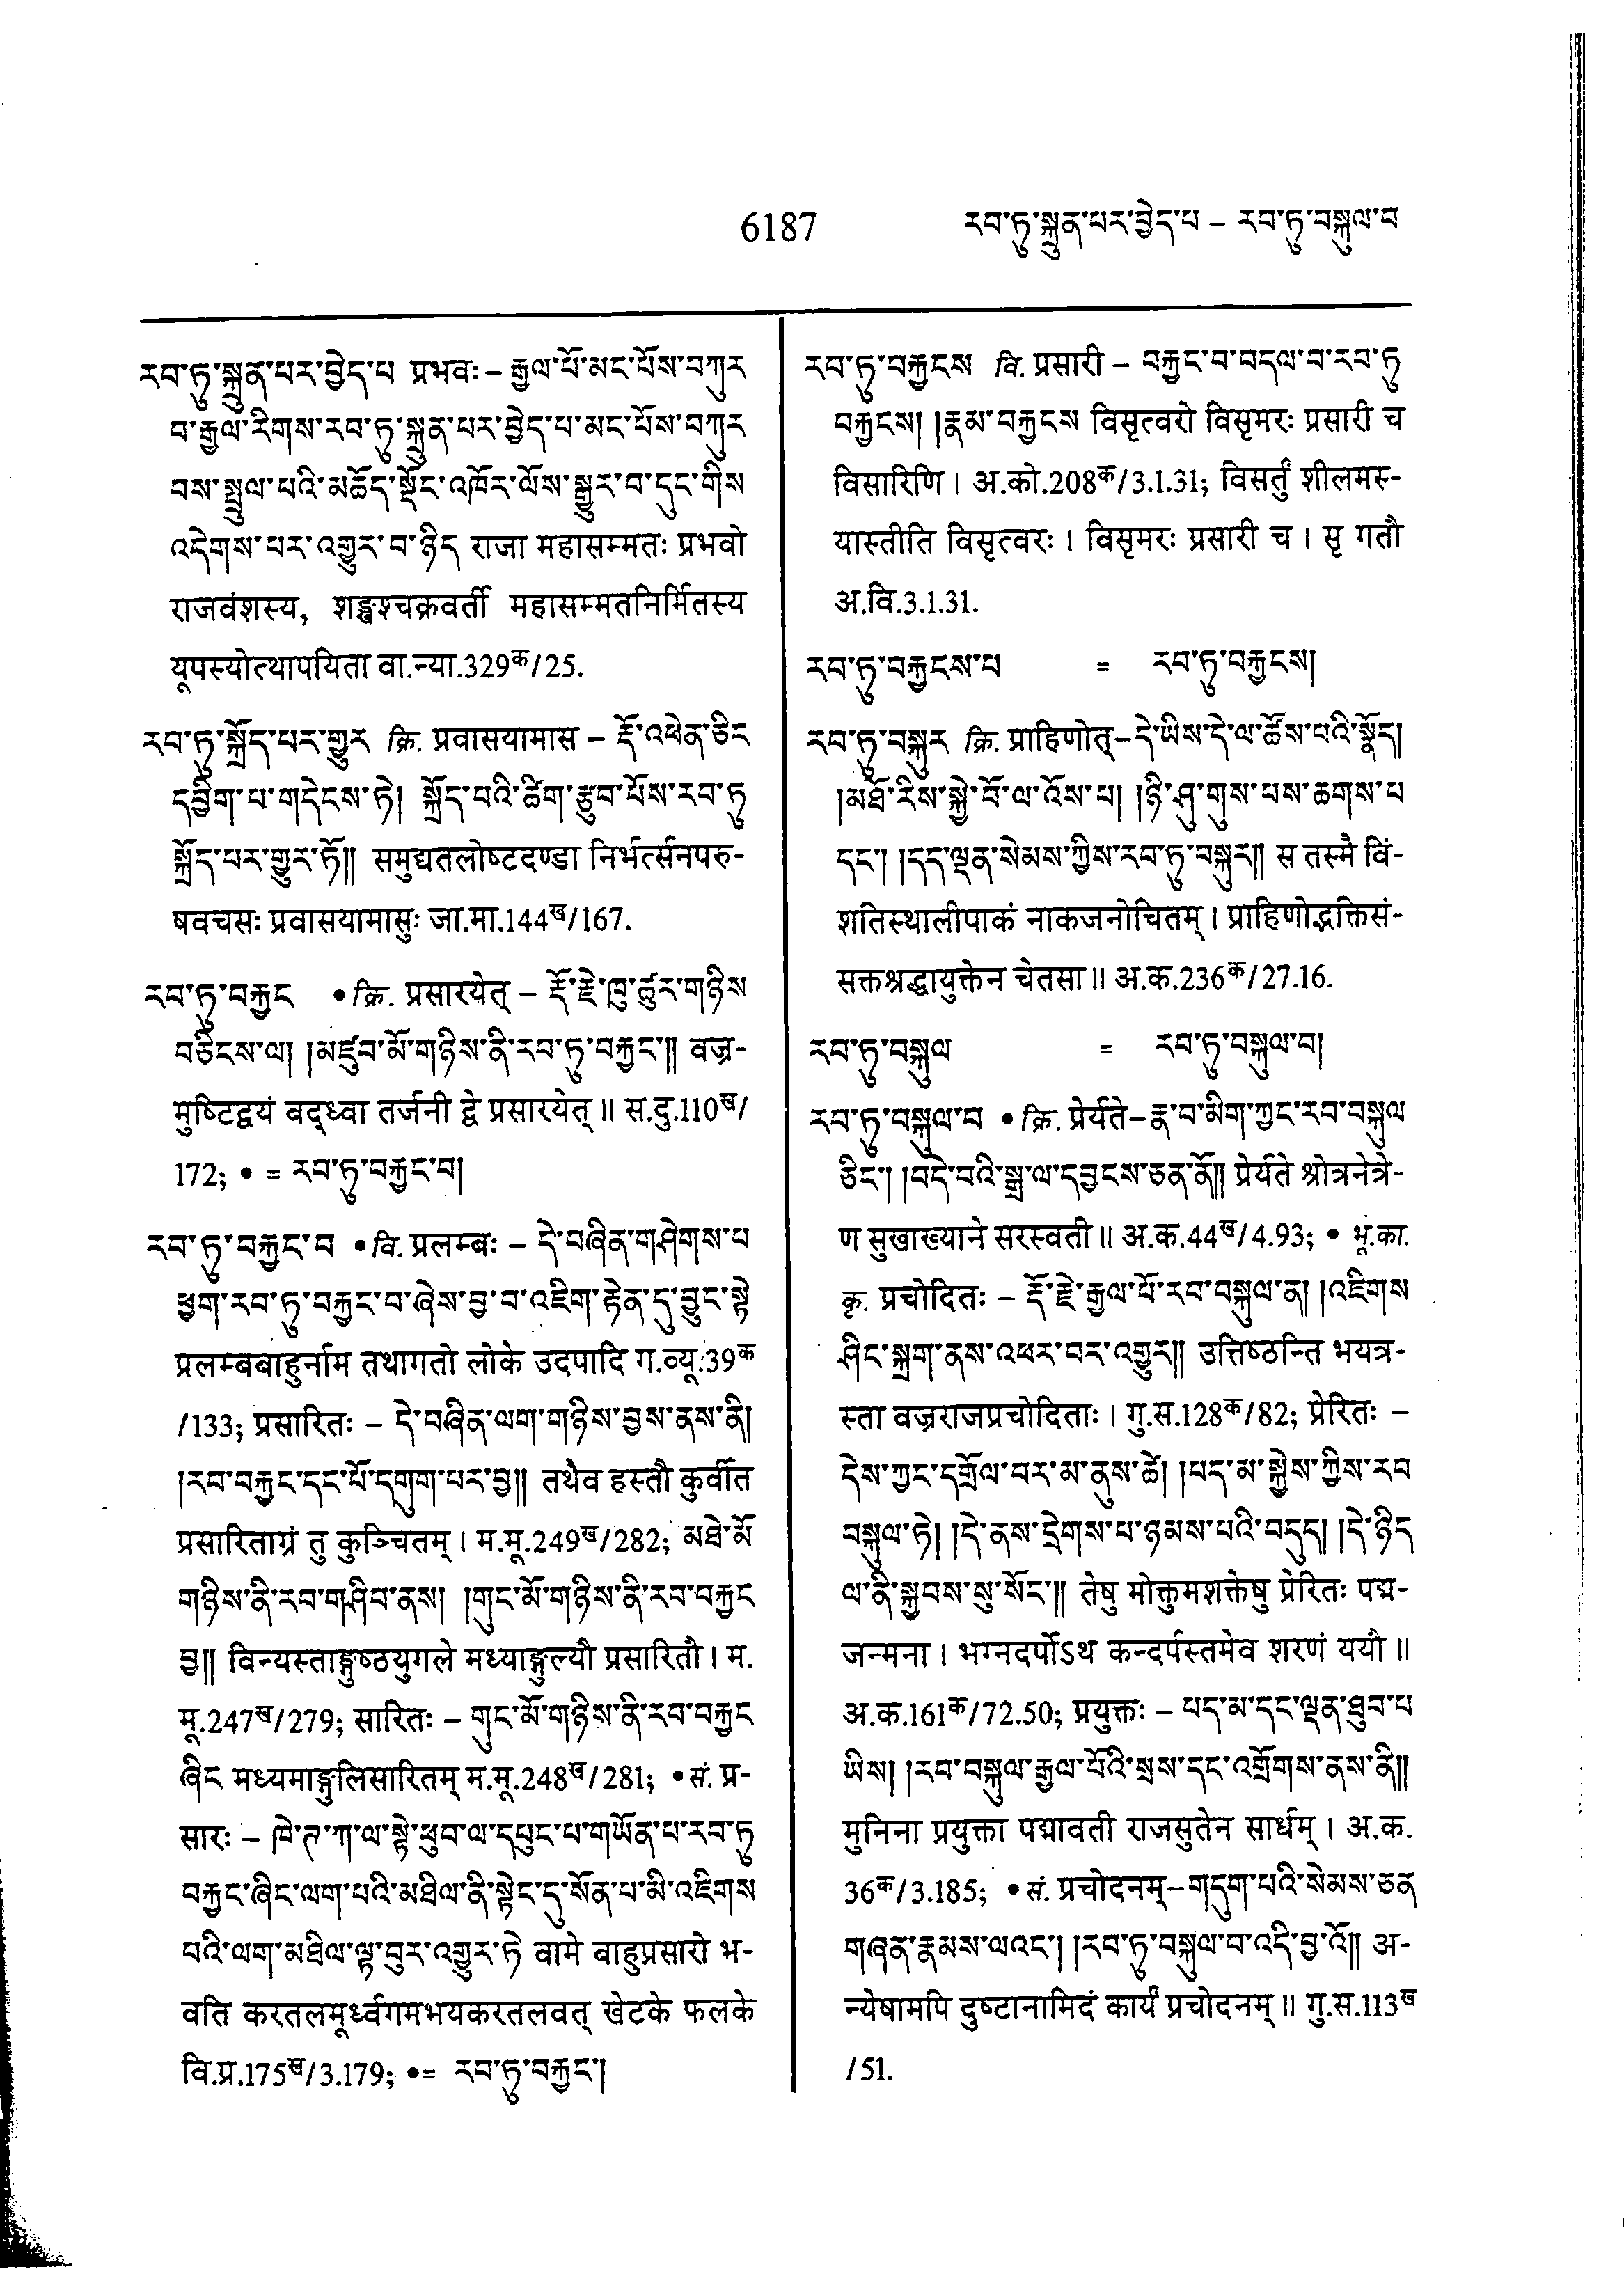 6187
རབ་ཏུ་སྐྲུན་པར་བྱེད་པ – རབ་ཏུ་བསྐུལ་བ
རབ་ཏུ་སྐྲུན་པར་བྱེད་པ प्रभवः – རྒྱལ་པོ་མང་པོས་བཀུར
བ་རྒྱལ་རིགས་རབ་ཏུ་སྐྲུན་པར་བྱེད་པ་མང་པོས་བཀུར
བས་སྤྲུལ་པའི་མཆོད་སྡོང་འཁོར་ལོས་སྒྱུར་བ་དུང་གིས
འདེགས་པར་འགྱུར་བ་ཉིད राजा महासम्मतः प्रभवो
राजवंशस्य, शङ्खश्चक्रवर्ती महासम्मतनिर्मितस्य
यूपस्योत्थापयिता वा.न्या.329क/25.
རབ་ཏུ་སྐྲོད་པར་གྱུར क्रि. प्रवासयामास – རྡོ་འཕེན་ཅིང
དབྱིག་པ་གདེངས་ཏེ། སྐྲོད་པའི་ཚིག་རྩུབ་པོས་རབ་ཏུ
སྐྲོད་པར་གྱུར་ཏོ༎ समुद्यतलोष्टदण्डा निर्भर्त्सनपरु-
षवचसः प्रवासयामासुः जा.मा.144ख/167.
རབ་ཏུ་བརྐྱང • क्रि. प्रसारयेत् – རྡོ་རྗེ་ཁུ་ཚུར་གཉིས
བཅིངས་ལ། །མཛུབ་མོ་གཉིས་ནི་རབ་ཏུ་བརྐྱང་༎ वज्र-
मुष्टिद्वयं बद्ध्वा तर्जनी द्वे प्रसारयेत् ॥ स.दु.110ख/
172; • = རབ་ཏུ་བརྐྱང་བ།
རབ་ཏུ་བརྐྱང་བ • वि. प्रलम्बः – དེ་བཞིན་གཤེགས་པ
ཕྱག་རབ་ཏུ་བརྐྱང་བ་ཞེས་བྱ་བ་འཇིག་རྟེན་དུ་བྱུང་སྟེ
प्रलम्बबाहुर्नाम तथागतो लोके उदपादि ग.व्यू.39क
/133; प्रसारितः – དེ་བཞིན་ལག་གཉིས་བྱས་ནས་ནི།
།རབ་བརྐྱང་དང་པོ་དགུག་པར་བྱ༎ तथैव हस्तौ कुर्वीत
प्रसारिताग्रं तु कुञ्चितम् । म.मू.249ख/282; མཐེ་མོ
གཉིས་ནི་རབ་གཤིབ་ནས། །གུང་མོ་གཉིས་ནི་རབ་བརྐྱང
བྱ༎ विन्यस्ताङ्गुष्ठयुगले मध्याङ्गुल्यौ प्रसारितौ । म.
मू.247ख/279; सारितः – གུང་མོ་གཉིས་ནི་རབ་བརྐྱང
ཞིང मध्यमाङ्गुलिसारितम् म.मू.248ख/281; • सं. प्र-
सारः – ཁེ་ཊ་ཀ་ལ་སྟེ་ཕུབ་ལ་དཔུང་པ་གཡོན་པ་རབ་ཏུ
བརྐྱང་ཞིང་ལག་པའི་མཐིལ་ནི་སྟེང་དུ་སོན་པ་མི་འཇིགས
པའི་ལག་མཐིལ་ལྟ་བུར་འགྱུར་ཏེ वामे बाहुप्रसारो भ-
वति करतलमूर्ध्वगमभयकरतलवत् खेटके फलके
वि.प्र.175ख/3.179; •= རབ་ཏུ་བརྐྱང་།
རབ་ཏུ་བརྐྱངས वि. प्रसारी – བརྐྱང་བ་བདལ་བ་རབ་ཏུ
བརྐྱངས། །རྣམ་བརྐྱངས विसृत्वरो विसृमरः प्रसारी च
विसारिणि । अ.को.208क/3.1.31; विसर्तुं शीलमस्-
यास्तीति विसृत्वरः । विसृमरः प्रसारी च । सृ गतौ
अ.वि.3.1.31.
རབ་ཏུ་བརྐྱངས་པ = རབ་ཏུ་བརྐྱངས།
རབ་ཏུ་བསྐུར क्रि. प्राहिणोत्–དེ་ཡིས་དེ་ལ་ཚོས་པའི་སྣོད།
།མཐོ་རིས་སྐྱེ་བོ་ལ་འོས་པ། །ཉི་ཤུ་གུས་པས་ཆགས་པ
དང་། །དད་ལྡན་སེམས་ཀྱིས་རབ་ཏུ་བསྐུར༎ स तस्मै विं-
शतिस्थालीपाकं नाकजनोचितम् । प्राहिणोद्भक्तिसं-
सक्तश्रद्धायुक्तेन चेतसा ॥ अ.क.236क/27.16.
རབ་ཏུ་བསྐུལ = རབ་ཏུ་བསྐུལ་བ།
རབ་ཏུ་བསྐུལ་བ • क्रि. प्रेर्यते–རྣ་བ་མིག་ཀྱང་རབ་བསྐུལ
ཅིང་། །བདེ་བའི་སྒྲ་ལ་དབྱངས་ཅན་ནོ༎ प्रेर्यते श्रोत्रनेत्रे-
ण सुखाख्याने सरस्वती ॥ अ.क.44ख/4.93; • भू.का.
कृ. प्रचोदितः – རྡོ་རྗེ་རྒྱལ་པོ་རབ་བསྐུལ་ན། །འཇིགས
ཤིང་སྐྲག་ནས་འཕར་བར་འགྱུར༎ उत्तिष्ठन्ति भयत्र-
स्ता वज्रराजप्रचोदिताः । गु.स.128क/82; प्रेरितः –
དེས་ཀྱང་དགྲོལ་བར་མ་ནུས་ཚེ། །པད་མ་སྐྱེས་ཀྱིས་རབ
བསྐུལ་ཏེ། །དེ་ནས་དྲེགས་པ་ཉམས་པའི་བདུད། །དེ་ཉིད
ལ་ནི་སྐྱབས་སུ་སོང་༎ तेषु मोक्तुमशक्तेषु प्रेरितः पद्म-
जन्मना । भग्नदर्पोऽथ कन्दर्पस्तमेव शरणं ययौ ॥
अ.क.161क/72.50; प्रयुक्तः – པད་མ་དང་ལྡན་ཐུབ་པ
ཡིས། །རབ་བསྐུལ་རྒྱལ་པོའི་སྲས་དང་འགྲོགས་ནས་ནི༎
मुनिना प्रयुक्ता पद्मावती राजसुतेन सार्धम् । अ.क.
36क/3.185; • सं. प्रचोदनम्–གདུག་པའི་སེམས་ཅན
གཞན་རྣམས་ལའང་། །རབ་ཏུ་བསྐུལ་བ་འདི་བྱ་འོ༎ अ-
न्येषामपि दुष्टानामिदं कार्यं प्रचोदनम् ॥ गु.स.113ख
/51.